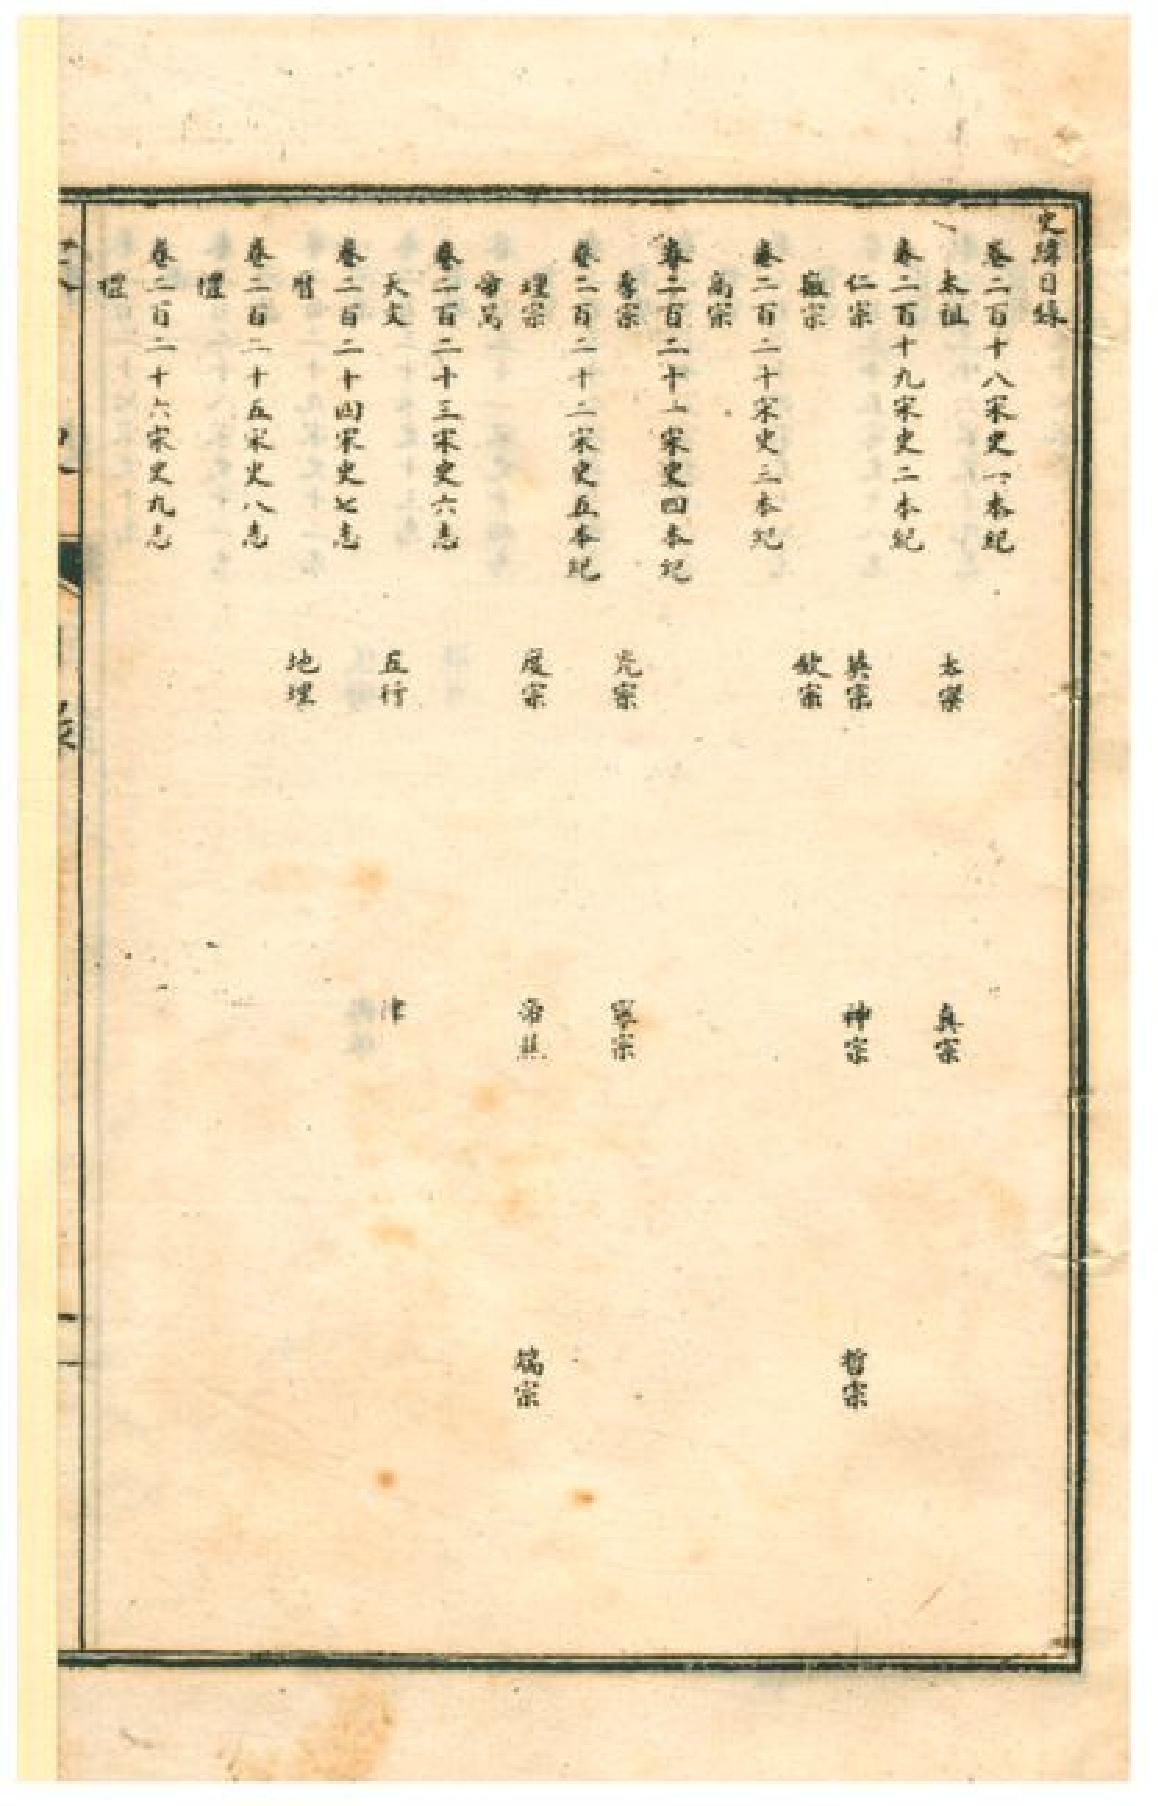 史緯目錄
卷二百十八宋史一本紀
太祖 太宗 真宗
卷二百十九宋史二本紀
仁宗 英宗 神宗 哲宗
徽宗 欽宗
卷二百二十宋史三本紀
高宗
卷二百二十一宋史四本紀
孝宗 光宗 寧宗
卷二百二十二宋史五本紀
理宗 度宗 瀛國 端宗
帝昺
卷二百二十三宋史六志
天文 五行 律
卷二百二十四宋史七志
曆 地理
卷二百二十五宋史八志
禮
卷二百二十六宋史九志
禮